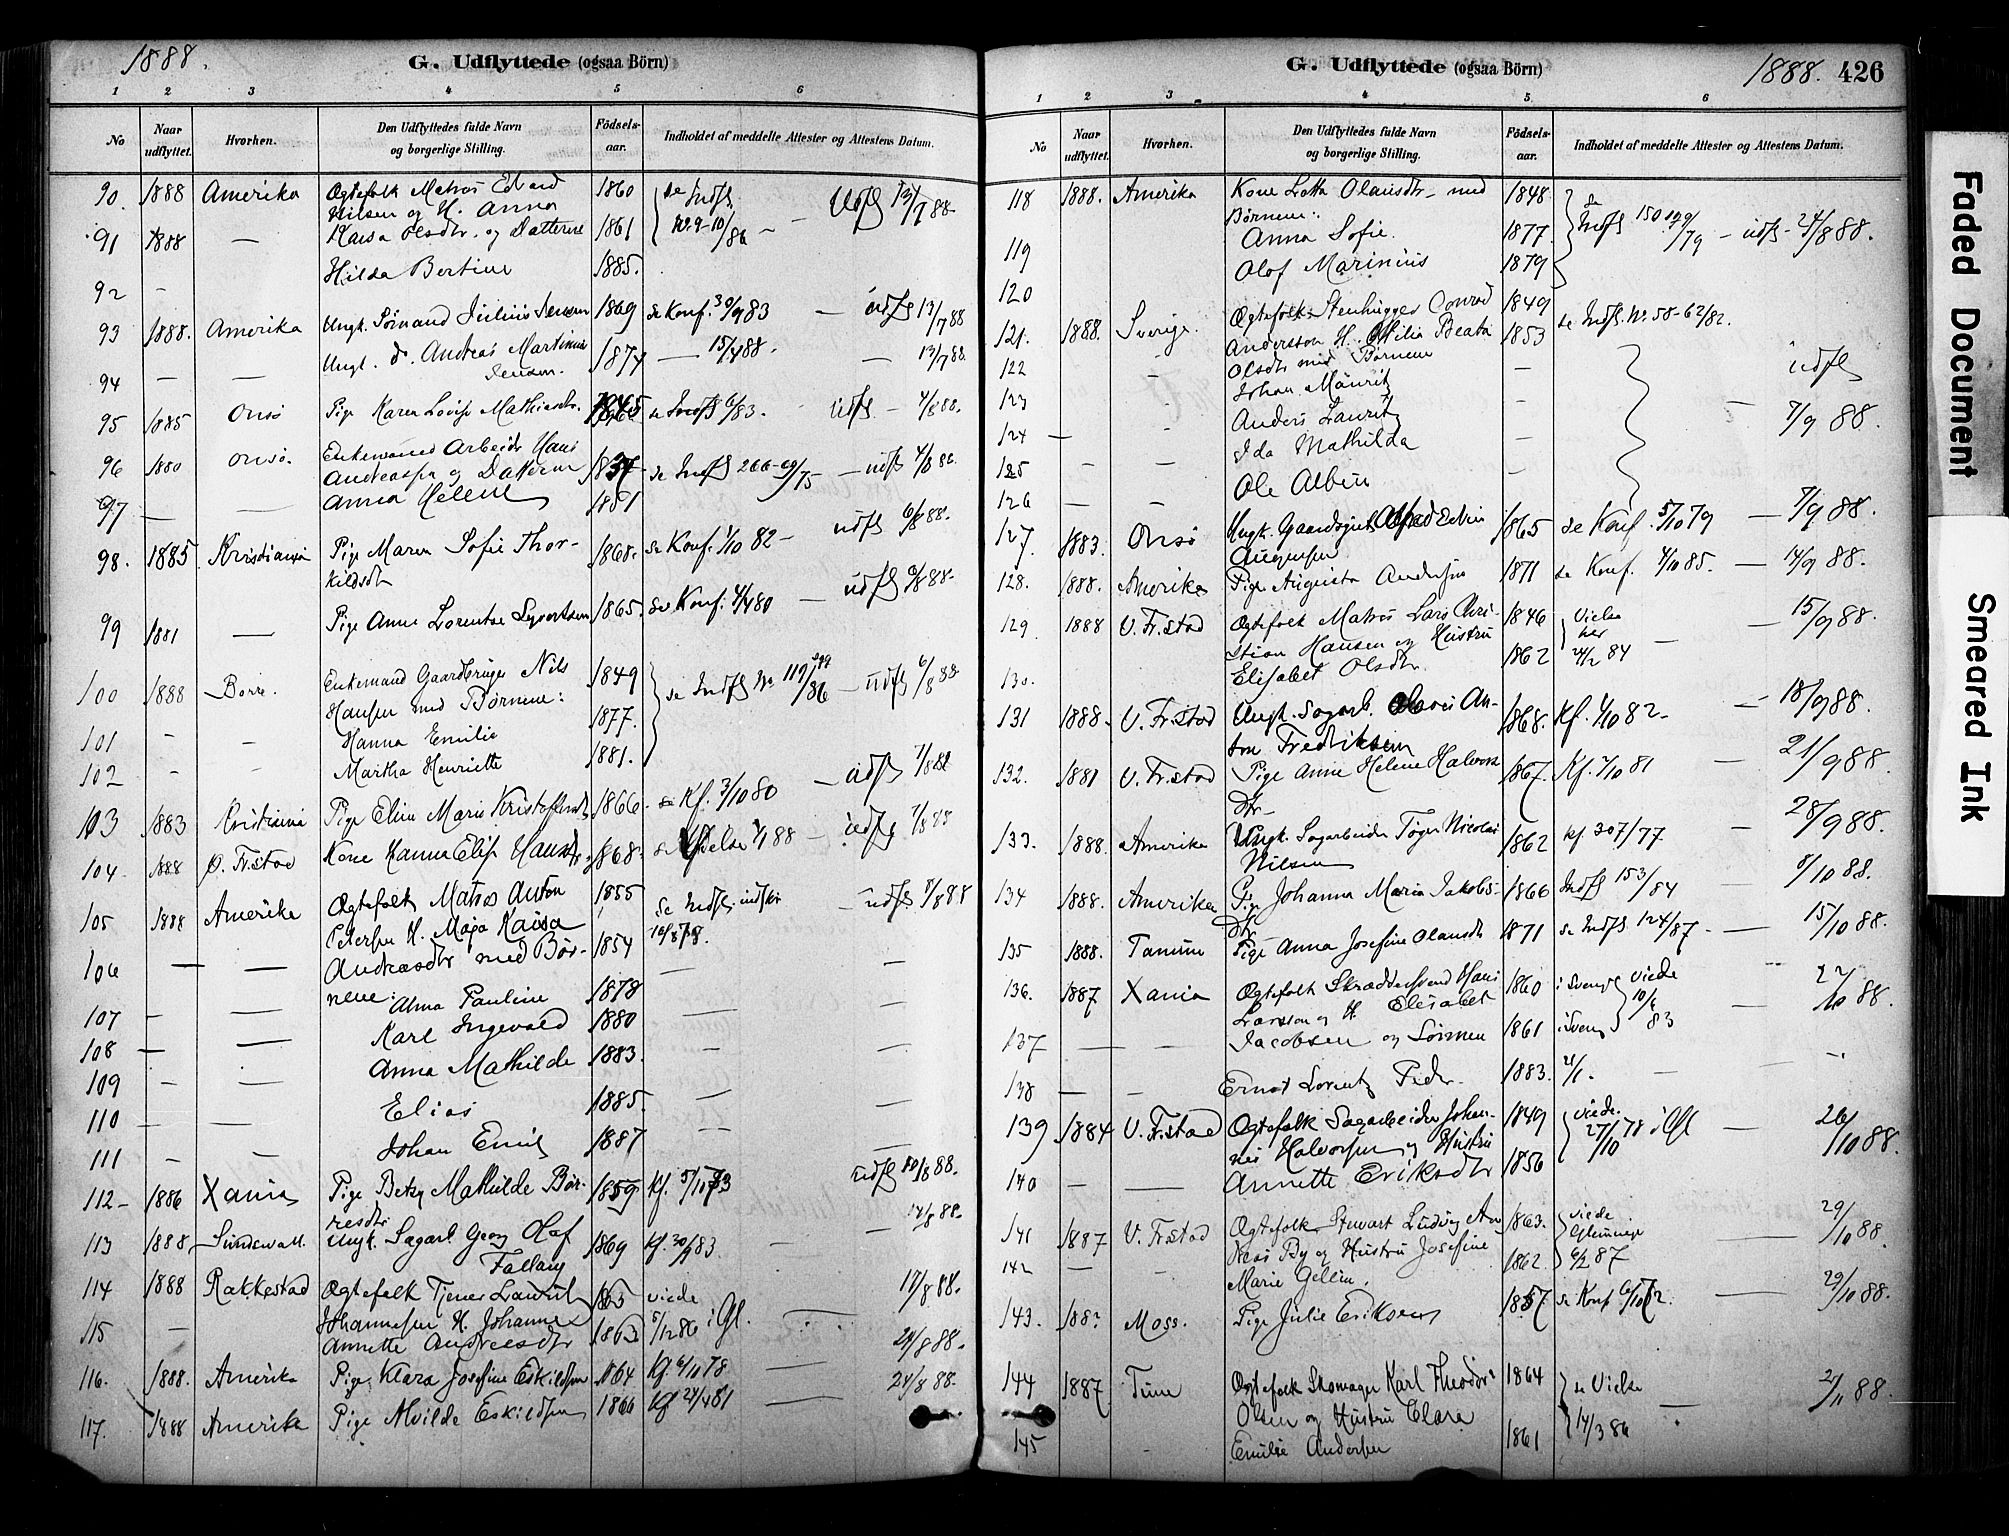 1888.
G. Udflyttede (ogsaa Börn)
1 2 3 4 5 6
No Naar udflyttet. Hvorhen. Den Udflyttedes fulde Navn og borgerlige Stilling. Födsels-aar. Indholdet af meddelte Attester og Attestens Datum.
90. 1888 Amerika Ægtefolk Matros Edvard 1860 se Indfl. Udfl 13/7 88
Nilsen og H. Anna
91 1888 — Kaisa Olsdtr. og Datteren 1861 No 9-10/86 —
92 - Hilda Bertine 1885.
93 1888. Amerika Ungk. Julius Jensen 1869 se Konf. 30/9 83 — udfl 13/7 88
94 — — Ungk. d. Andreas Martinius 1874 — 15/4 88. — 13/7 88.
Jensen.
95 1885 Onsö Pige Karen Lovise Mathiasdtr. 1865 se Indfl 6/83. udfl — 4/8 88.
96 1880 Onsö. Enkemand Arbeider Hans
Andreassen og Datteren 1837 se Indfl 266-69/75 — udfl 4/8 88.
97 — — Anna Helene 1881
98. 1885 Kristiania Pige Maren Sofie Thor- 1868. se Konf. 1/10 82 — udfl 6/8 88.
kildsdtr
99 1881 — Pige Anne Lorentse Syvertsen 1865. se Konf. 4/4 80 — udfl 6/8 88.
100 1888 Borre. Enkemand Gaardbruger Nils 1849 se Indfl No 119/86 — udfl 6/8 88
Hansen med Börnene:
101 - - Hanna Emilie 1877.
102 - - Martha Henriette 1881.
103 1883 Kristiania Pige Elin Marie Kristoffersdtr 1866. se Kf. 3/10 80 — udfl 7/8 88
104. 1888 Ø. Fr.stad Kone Hanna Elise Hansdtr 1868. se Vielse 88 — udfl 7/8 88
105 1888 Amerika Ægtefolk Matros Anton 1855 se Indfl. — udfl 8/8 88
Petersen H. Maja Kaisa
106 — — Andreasdtr med Bör- 1854 — —
nene: Alma Pauline 1878
107 — — Karl Ingevald 1880 — —
108 — — Anna Mathilde 1883. — —
109 — — Elias 1885. — —
110 — — Johan Emil 1887 — —
111 - -
112 — 1886 Xania Pige Betzy Mathilde Bör- 1859 Kf. 5/10 73 udfl 10/8 88.
resdtr
113 1888 Sundswall. Ungk. Sagarb. Georg Olaf 1869 Kf. 30/9 83 — 14/8 88.
Fallang
114 1888 Rakkestad Ægtefolk Tjener Lauritz 1863 viede 17/8 88.
115 — Johannesen H. Johanne 5/12 86 i Gl.
Annette Andreasdtr 1863 24/8 88.
116. 1888. Amerika Pige Klara Josefine Eskildsen 1864 Kf. 6/10 78 — 24/8 88.
117. 1888 Amerika Pige Alvilde Eskildsen 1866 Kf 24/4 81 —
G. Udflyttede (ogsaa Börn)
1888. 426
1 2 3 4 5 6
No Naar udflyttet. Hvorhen. Den Udflyttedes fulde Navn og borgerlige Stilling. Födsels-aar. Indholdet af meddelte Attester og Attestens Datum.
118 1888. Amerika Kone Lotta Olausdtr. med 1848. se Indfl 150 /79 — udfl 24/8 88.
Börnene:
119 Anna Sofie. 1877.
120 Olof Marinius 1879
121. 1888. Sverige. Ægtefolk Stenhugger Conrad 1849 se Indfl. No 58-62/82.
Andersson H. Otilia Beata 1853
122 - Olsdtr med Börnene — udfl
123 - Johan Mauritz — 7/9 88.
124 — Anders Lauritz
125 — — Ida Mathilda —
126 — — Ole Albin —
127. 1883. Onsö Ungk. Gaardsgut Alfred Edvin 1865 se Konf. 5/10 79 — 7/9 88.
Augensen
128. 1888. Amerika Pige Augusta Andersen 1871 se Konf. 4/10 85. — 14/9 88.
129. 1888 V. Fr.stad Ægtefolk Matros Lars Chri- 1846 Vielse — 15/9 88.
stian Hansen og Hustru her
130. Elisabet Olsdtr. 1862 24/2 84
131 1888. V. Fr.stad Ungk. Sagarb. An- 1868. Kf. 1/10 82 — 18/9 88.
ton Fredriksen
132. 1881 V. Fr.stad Pige Anne Helene Halvors 1867. Kf. 81 — 21/9 88.
dtr.
133. 1888. Amerika Ungk. Sagarbeider Töger Nicolai 1862 kf. 307/77. — 28/9 88.
Nilsen
134 1888. Amerika Pige Johanna Maria Jakobs- 1866 Indfl 153/84 — 8/10 88.
dtr.
135 1888. Tanum Pige Anna Josefine Olausdtr 1871 se Indfl 124/87 — 15/10 88.
136. 1887 Xania Ægtefolk Skrædersvend Hans 1860 viede — 22/10 88.
Larsson og H. Elisabet 10/6
137 — — Jacobsen og Sönnen 1861 83
138 — — Ernst Lorentz Peder. 1883. 21/1. —
139 1884 V. Fr.stad Ægtefolk Sagarbeider Johan- 1849 viede. 27/10 78 i Gl — 26/10 88.
nes Halvorsen og Hustru
140 — — Annette Eriksdtr 1856
141 1887 V. Fr.stad Ægtefolk Stewart Ludvig An 1863. viede 29/10 88.
dreas By og Hustru Josefine Glemminge
142 — — Marie Gellin. 1862. 6/2 87
143. 188? Moss. Pige Julie Eriksen 1857 se Konf 6/10 72. — 29/10 88.
144 1887 Tune Ægtefolk Skomager Karl Theodor 1864 se Vielse — 2/11 88.
Olsen og Hustru Clara 14/3 86
145 - Emilie Andersen 1861
Faded Document
Smeared Ink